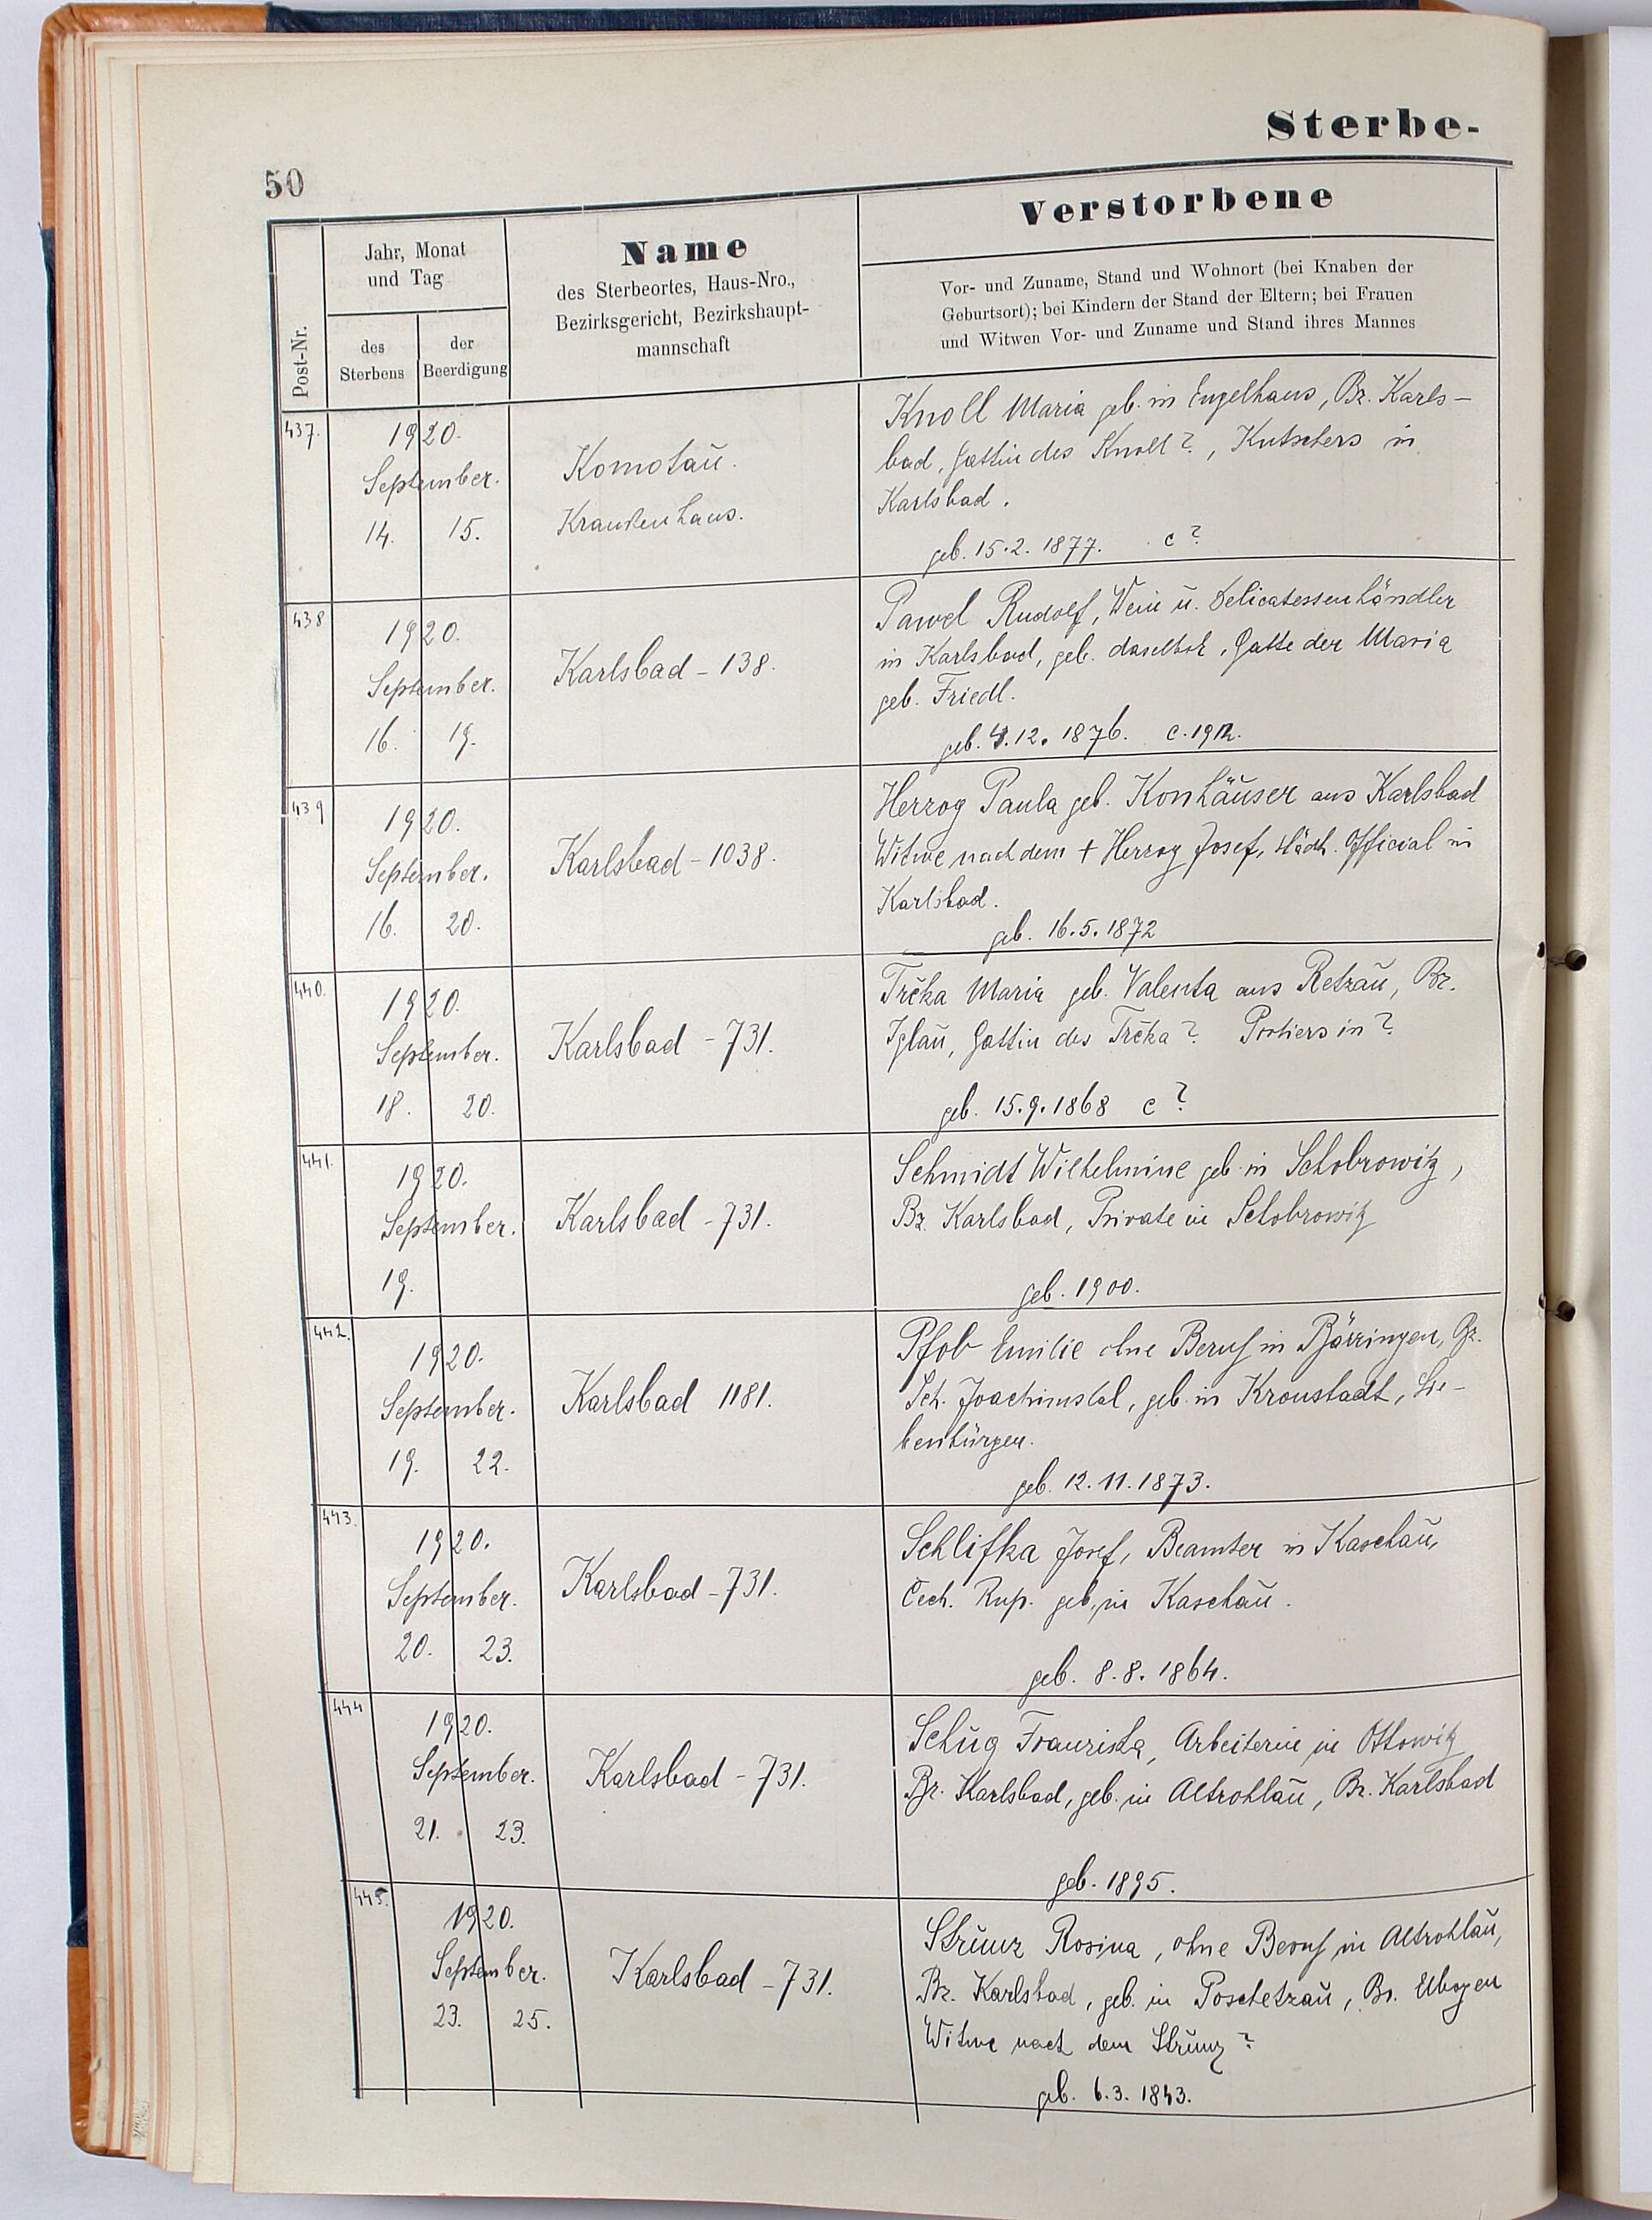 Sterbe-
50
Post-Nr.
Jahr, Monat
und Tag
des
Sterbens
der
Beerdigung
Name
des Sterbeortes, Haus-Nro.,
Bezirksgericht, Bezirkshaupt-
mannschaft
Verstorbene
Vor- und Zuname, Stand und Wohnort (bei Knaben der
Geburtsort); bei Kindern der Stand der Eltern; bei Frauen
und Witwen Vor- und Zuname und Stand ihres Mannes
437.
1920.
September.
14. 15.
Komotaŭ.
Krankenhaus.
Knoll Maria geb. in Engelhaus, Bz. Karls-
bad, Gattin des Knoll ?, Kutschers in
Karlsbad.
geb. 15.2.1877. c ?
438
1920.
September.
16. 19.
Karlsbad - 138.
Pawel Rudolf, Wein ŭ. Delicatessenhändler
in Karlsbad, geb. daselbst, Gatte der Maria
geb. Friedl.
geb. 4.12.1876. c. 1912.
439
1920.
September.
16. 20.
Karlsbad - 1038.
Herzog Paula geb. Konhäuser aus Karlsbad
Witwe nach dem + Herzog Josef, städt. Official in
Karlsbad.
geb. 16.5.1872
440.
1920.
September.
18. 20.
Karlsbad - 731.
Trčka Maria geb. Valenta aus Retzaŭ, Bz.
Iglaŭ, Gattin des Trčka ? Portiers in ?
geb. 15.9.1868 c ?
441.
1920.
September.
19.
Karlsbad - 731.
Schmidt Wilhelmine geb. in Schobrowitz,
Bz. Karlsbad, Private in Schobrowitz
geb. 1900.
442.
1920.
September.
19. 22.
Karlsbad 1181.
Pfob Emilie ohne Beruf in Bärringen, Bz.
Sct. Joachimstal, geb. in Kronstadt, Sie-
benbürgen.
geb. 12.11.1873.
443.
1920.
September.
20. 23.
Karlsbad - 731.
Schlifka Josef, Beamter in Kaschaŭ,
Čech. Rep. geb. in Kaschaŭ.
geb. 8.8.1864.
444
1920.
September.
21. 23.
Karlsbad - 731.
Schŭg Franziska, Arbeiterin in Ottowitz
Bz. Karlsbad, geb. in Altrohlaŭ, Bz. Karlsbad
geb. 1895.
445.
1920.
September.
23. 25.
Karlsbad - 731.
Strŭnz Rosina, ohne Beruf in Altrohlaŭ,
Bz. Karlsbad, geb. in Poschetzaŭ, Bz. Elbogen
Witwe nach dem Strŭnz ?
geb. 6.3.1843.